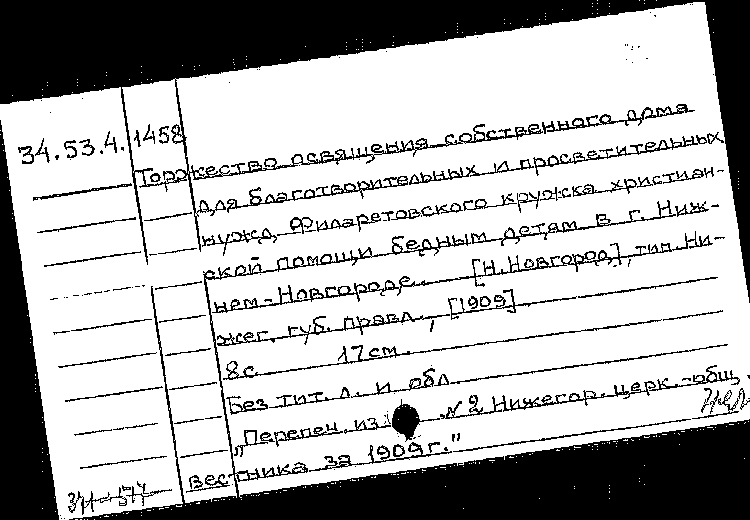 34.53.4. 1458
Торжество освящения собственного дома
для благотворительных и просветительных
нужд Филаретовского кружка христиан-
ской помощи бедным детям в г. Ниж-
нем-Новгороде. [Н. Новгород], тип. Ни-
жег. губ. правл., [1909]
8 с. 17 см.
Без тит. л. и обл
„Перепеч. из № 2 Нижегор. церк.-общ.
вестника за 1909 г."